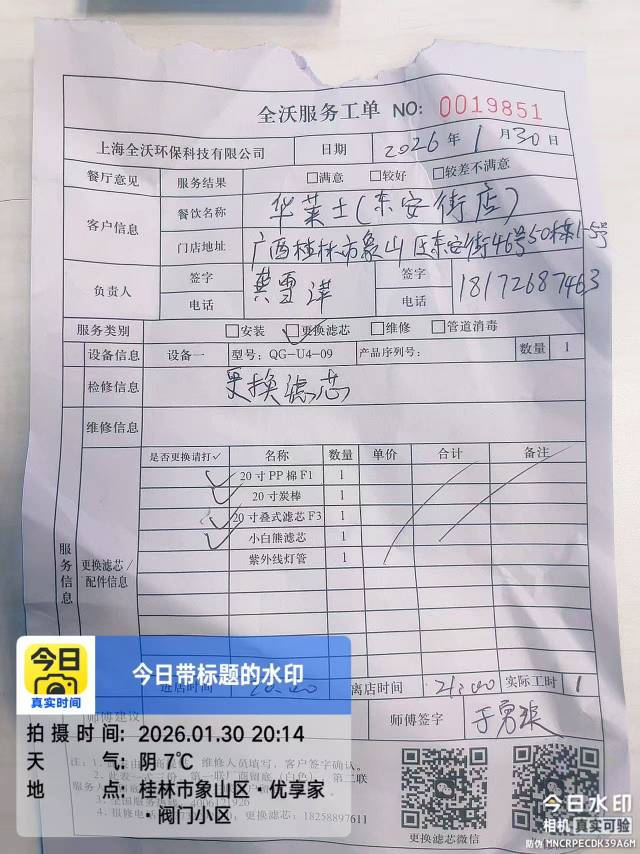 全沃服务工单 NO: 0019851
上海全沃环保科技有限公司 日期 2026年1月30日
餐厅意见 服务结果 □满意 □较好 □较差不满意
客户信息 餐饮名称 华莱士(东安街店)
门店地址 广西桂林市象山区东安街46号50栋1-5号
负责人 签字 龚雪洋 签字
电话 电话 18172687463
服务类别 □安装 ☑更换滤芯 □维修 □管道消毒
设备信息 设备一 型号: QG-U4-09 产品序列号: 数量 1
检修信息 更换滤芯
维修信息
服务信息
更换滤芯/配件信息
是否更换请打✓ 名称 数量 单价 合计 备注
✓ 20寸PP棉F1 1
✓ 20寸炭棒 1
✓ 20寸叠式滤芯F3 1
✓ 小白熊滤芯 1
紫外线灯管 1
进店时间 离店时间 21:00 实际工时 1
师傅建议 师傅签字
今日
真实时间
今日带标题的水印
拍摄时间: 2026.01.30 20:14
天气: 阴 7℃
地点: 桂林市象山区·优享家
·阀门小区
维修人员填写,客户签字确认。
更换滤芯: 18258897611
更换滤芯微信
今日水印
相机 真实可验
防伪 MNCRPECDK39A6M